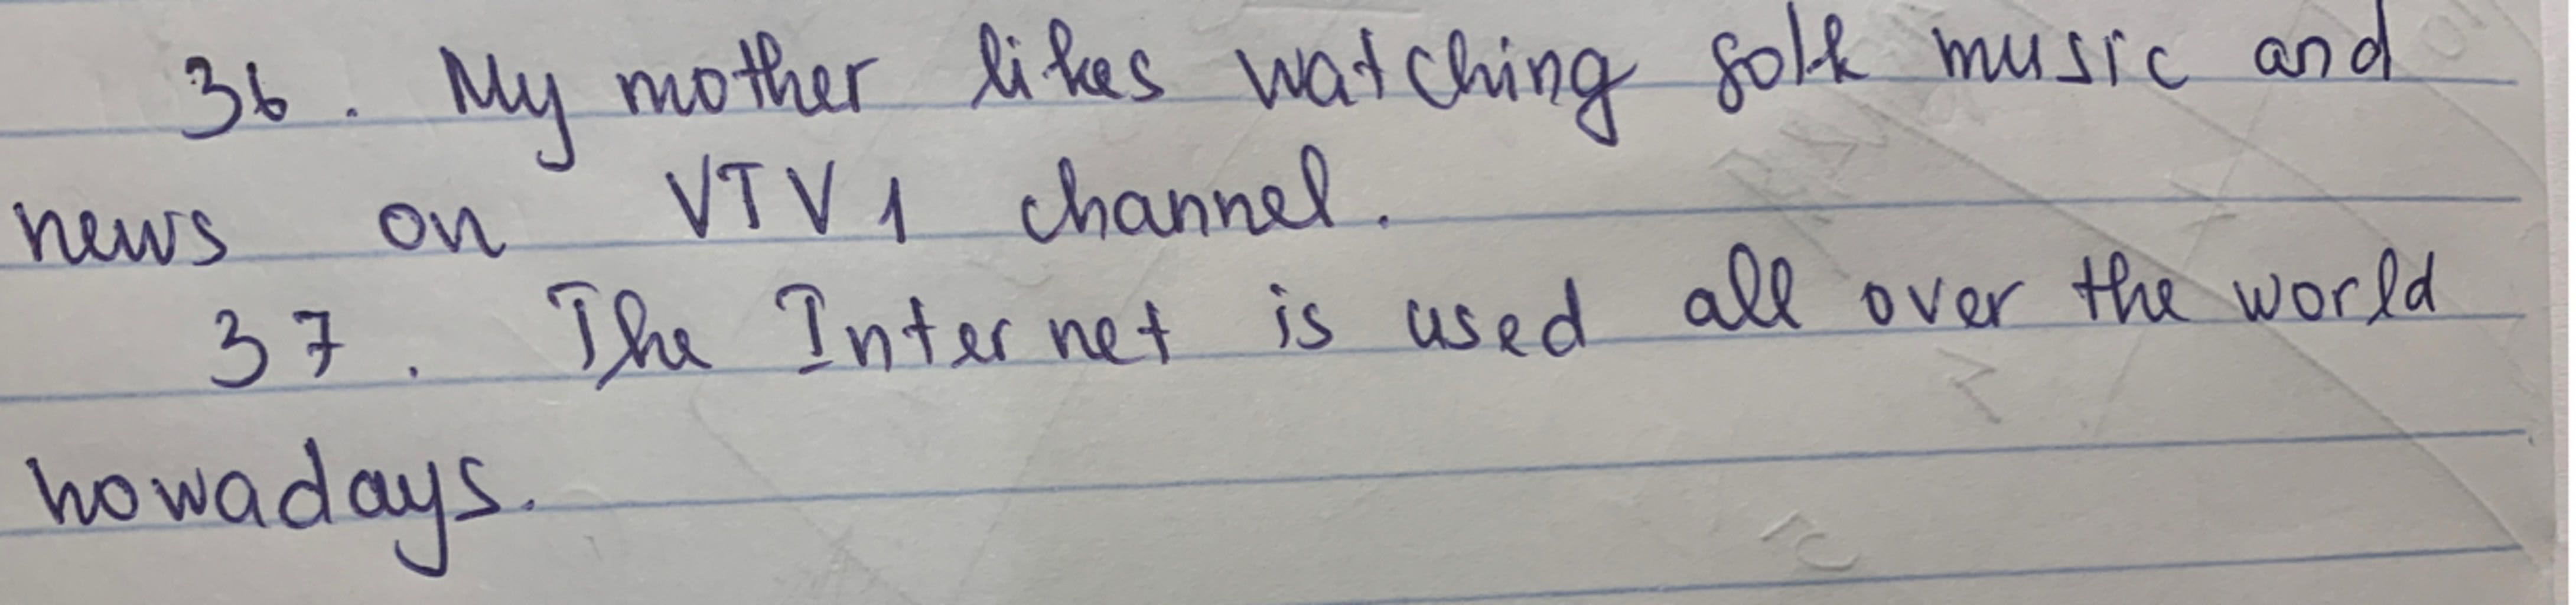 36. My mother likes watching folk music and
news on VTV1 channel.
37. The Internet is used all over the world
nowadays.